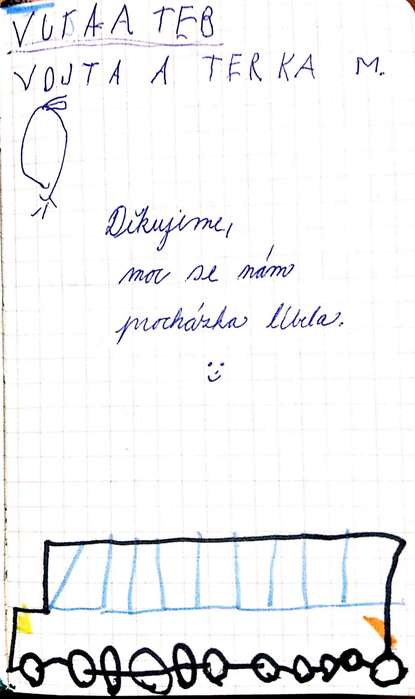 VOJTA A TERKA M.
Děkujeme,
moc se nám
procházka líbila.